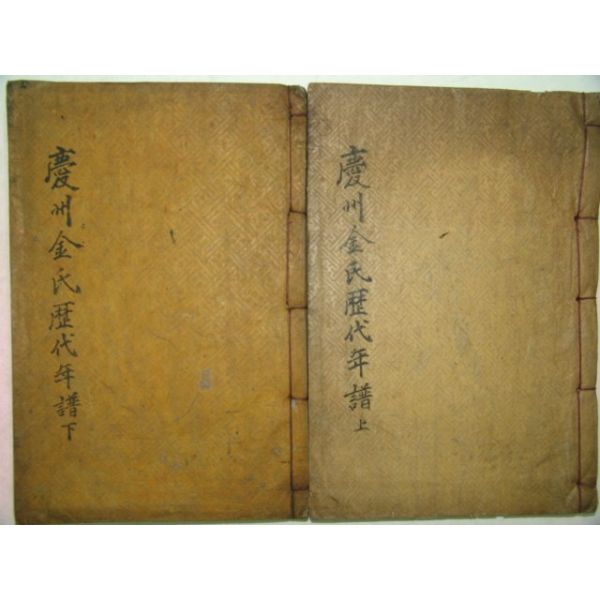 慶州金氏歷代年譜 上
慶州金氏歷代年譜 下